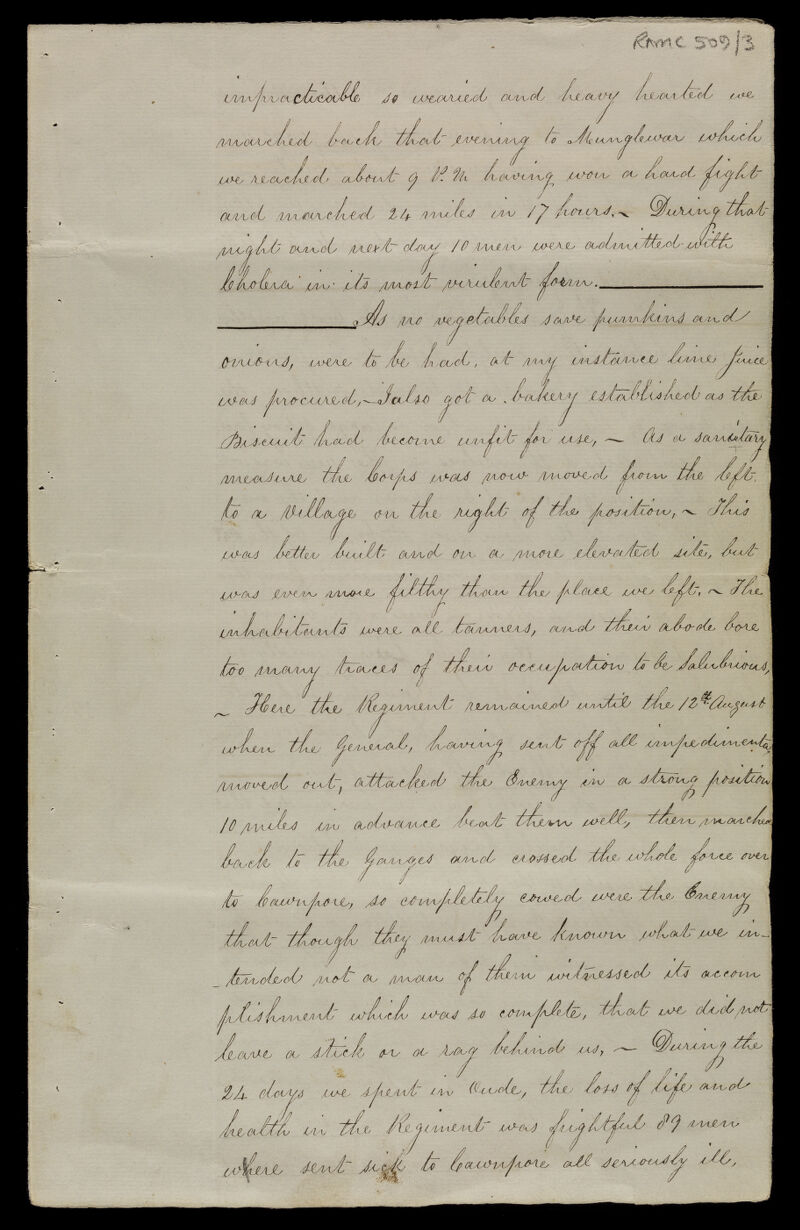 RAMC 509/3
impracticable so wearied and heavy hearted we
marched back that evening to Munglewar which
we reached about 9 P.M having won a hard fight
and marched 24 miles in 17 hours. ~ During that
night and next day 10 men were admitted with
Cholera in its most virulent form.
As no vegetables save pumkins and
onions, were to be had, at my instance lime juice
was procured, - I also got a bakery established as the
Biscuit had become unfit for use, ~ As a sanitary
measure the Corps was now moved from the left
to a Village on the right of the position, ~ This
was better built and on a more elevated site, but
was even more filthy than the place we left. ~ The
inhabitants were all tanners, and their abode bore
too many traces of their occupation to be Salubrious,
~ Here the Regiment remained until the 12th August
when the General, having sent off all impedimenta
moved out, attacked the Enemy in a strong position
10 miles in advance beat them well, then marched
back to the Ganges and crossed the whole force over
to Cawnpore, so completely cowed were the Enemy
that though they must have known what we in-
-tended not a man of them witnessed its accom
plishment which was so complete, that we did not
leave a stick or a rag behind us, ~ During the
24 days we spent in Oude, the loss of life and
health in the Regiment was frightful 89 men
where sent sick to Cawnpore all seriously ill,